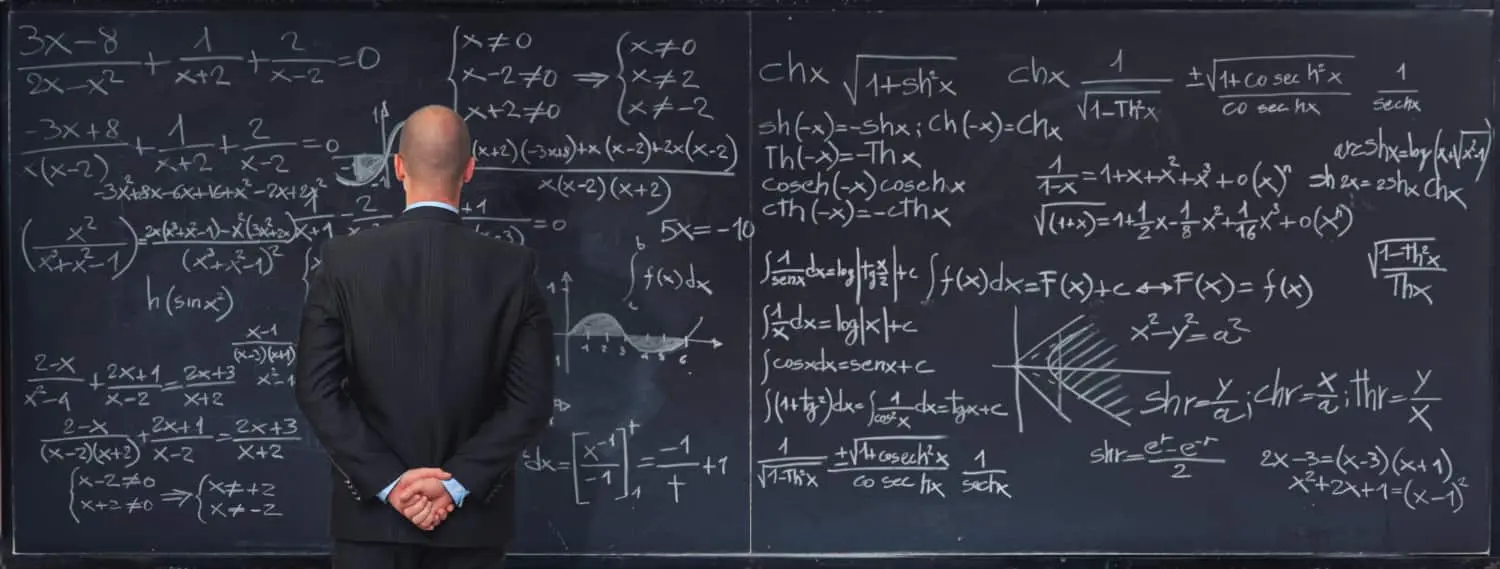 3x-8/2x-x² + 1/x+2 + 2/x-2 = 0
{x≠0 x-2≠0 x+2≠0 ⇒ {x≠0 x≠2 x≠-2
-3x+8/x(x-2) + 1/x+2 + 2/x-2 = 0
(x+2)(-3x+8)+x(x-2)+2x(x-2)/x(x-2)(x+2)
-3x²+8x-6x+16+x²-2x+2x²
(x²/x³+x²-1)=2x(x³+x²-1)-x²(3x²+2x)/(x³+x²-1)²
=0
5x=-10
∫f(x)dx
h(sinx²)
x-1/(x-3)(x+1)
1 2 3 4 5 6
2-x/x²-4 + 2x+1/x-2 = 2x+3/x+2
2-x/(x-2)(x+2) + 2x+1/x-2 = 2x+3/x+2
{x-2≠0 x+2≠0 ⇒ {x≠+2 x≠-2
dx=[x⁻¹/-1]=-1/T+1
chx √1+sh²x
chx 1/√1-Th²x ±√1+cosech²x/cosechx 1/sechx
sh(-x)=-shx; ch(-x)=chx
Th(-x)=-Thx
cosech(-x)cosechx
cth(-x)=-cthx
arcshx=log(x+√x²-1)
1/1-x=1+x+x²+x³+o(x)ⁿ
⇒h2x=2shx chx
√(1+x)=1+1/2x-1/8x²+1/16x³+o(xⁿ)
∫1/senx dx=log|tg x/2|+c
∫f(x)dx=F(x)+c↔F(x)=f(x)
√1-Th²x/Thx
∫1/x dx=log|x|+c
x²-y²=a²
∫cosxdx=senx+c
∫(1+tg²)dx=∫1/cos²x dx=tgx+c
shr=y/a; chr=x/a; thr=y/x
1/√1-Th²x ±√1+cosech²x/cosechx 1/sechx
shr=eʳ-e⁻ʳ/2
2x-3=(x-3)(x+1)
x²+2x+1=(x-1)²